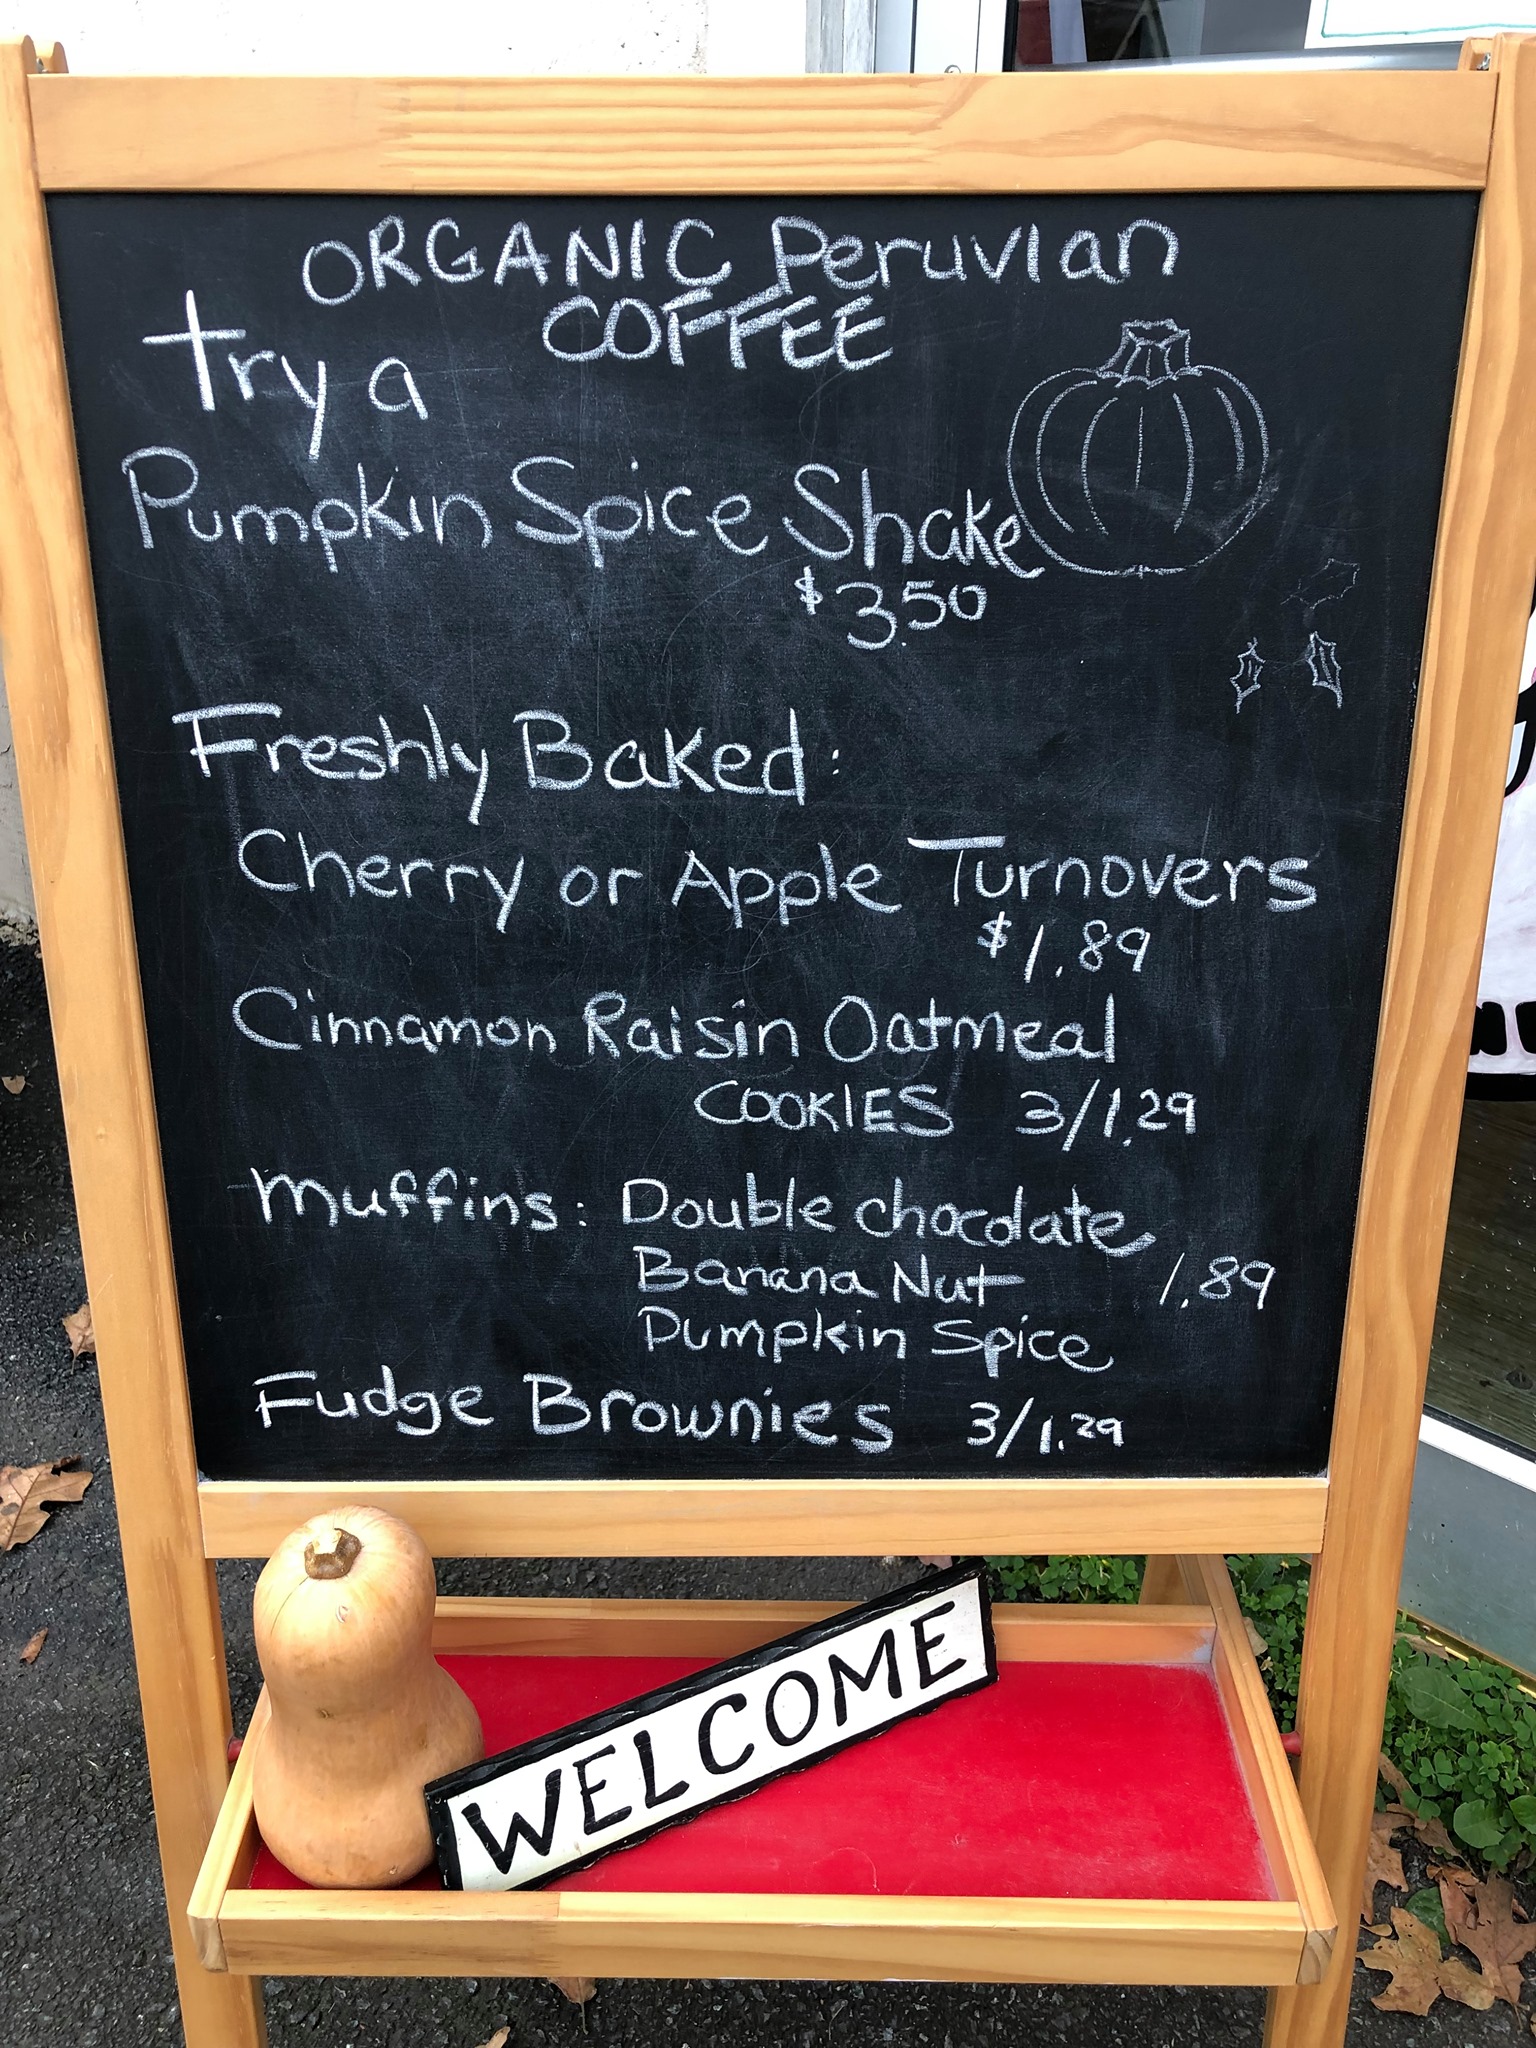 ORGANIC Peruvian
COFFEE
Try a
Pumpkin Spice Shake
$3.50
Freshly Baked:
Cherry or Apple Turnovers
$1.89
Cinnamon Raisin Oatmeal
COOKIES 3/1.29
Muffins: Double chocolate
Banana Nut 1.89
Pumpkin Spice
Fudge Brownies 3/1.29
WELCOME